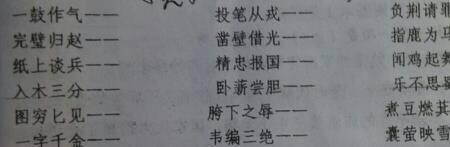 一鼓作气—— 投笔从戎—— 负荆请罪
完璧归赵—— 凿壁借光—— 指鹿为马
纸上谈兵—— 精忠报国—— 闻鸡起舞
入木三分—— 卧薪尝胆—— 乐不思蜀
图穷匕见—— 胯下之辱—— 煮豆燃萁
一字千金—— 韦编三绝—— 囊萤映雪